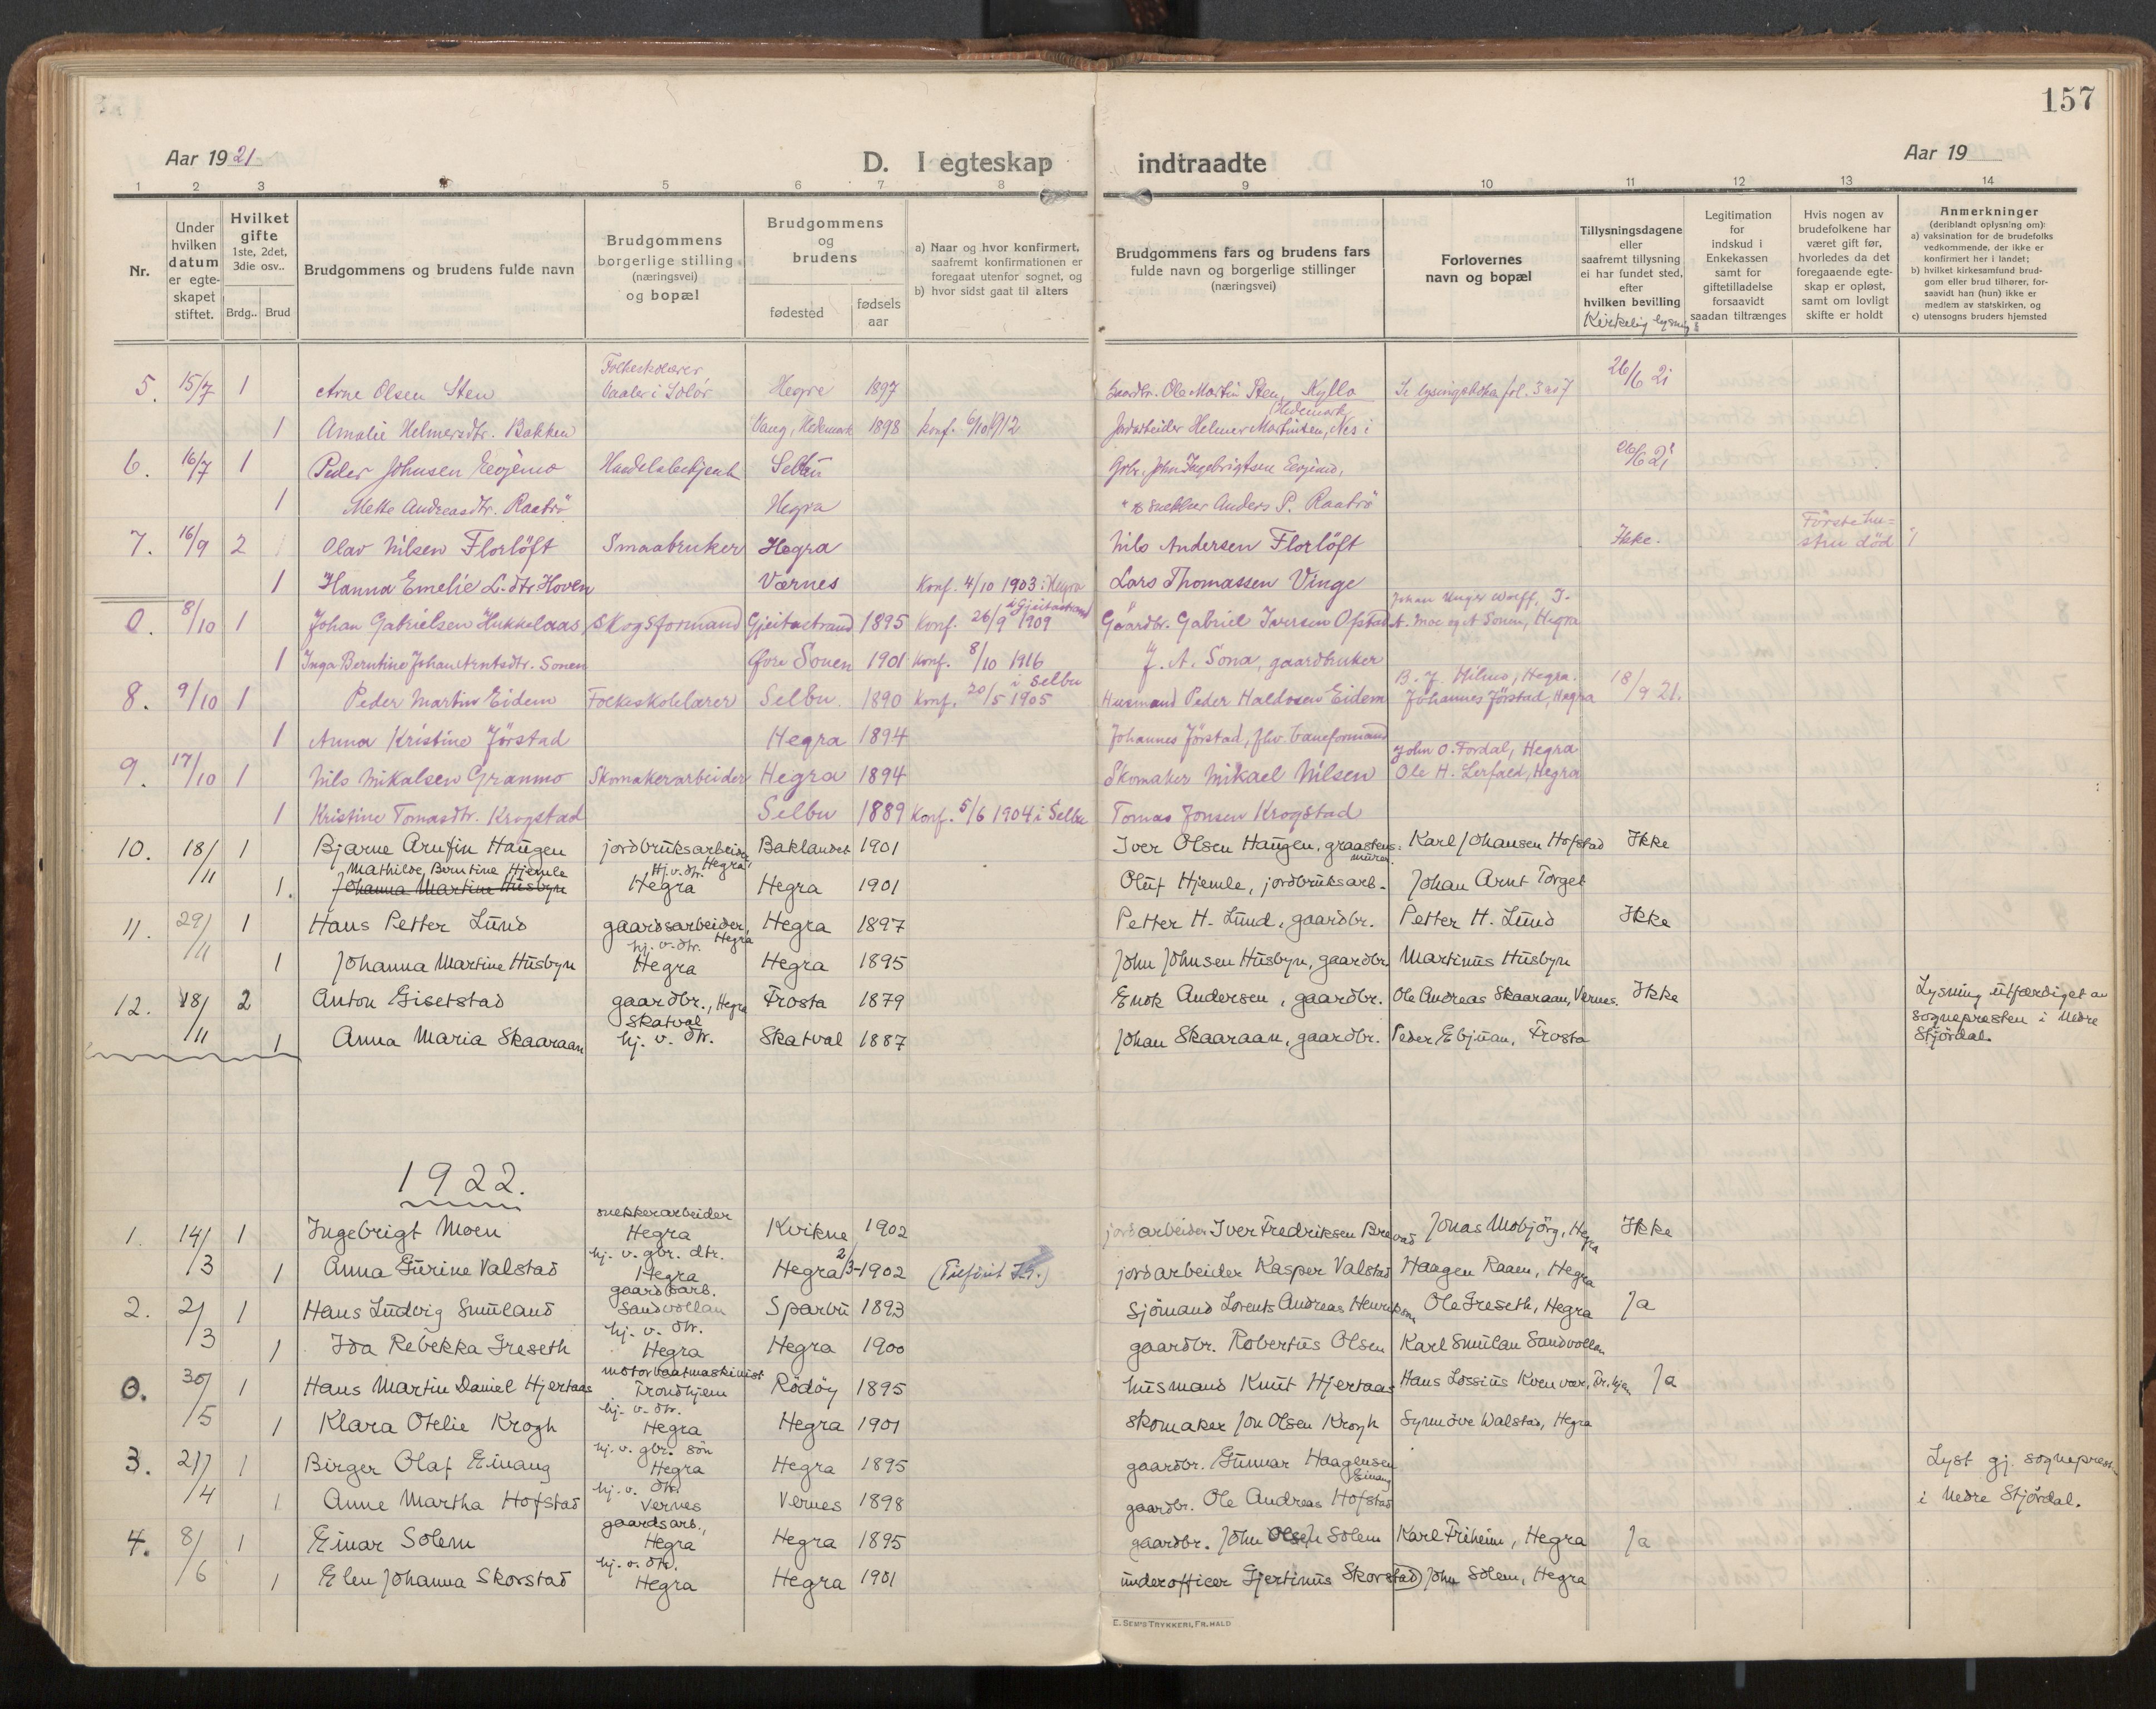 157
Aar 1921
D. I egteskap indtraadte
Aar 19
1 2 3 5 6 7 8 9 10 11 12 13 14
Nr.
Under hvilken datum er egteskapet stiftet.
Hvilket gifte 1ste, 2det, 3die osv..
Brdg.. Brud
Brudgommens og brudens fulde navn
Brudgommens borgerlige stilling (næringsvei) og bopæl
Brudgommens og brudens
fødested
fødsels aar
a) Naar og hvor konfirmert, saafremt konfirmationen er foregaat utenfor sognet, og
b) hvor sidst gaat til alters
Brudgommens fars og brudens fars fulde navn og borgerlige stillinger (næringsvei)
Forlovernes navn og bopæl
Tillysningsdagene eller saafremt tillysning ei har fundet sted, efter hvilken bevilling
Kirkelig lysning
Legitimation for indskud i Enkekassen samt for giftetilladelse forsaavidt saadan tiltrænges
Hvis nogen av brudefolkene har været gift før, hvorledes da det foregaaende egteskap er opløst, samt om lovligt skifte er holdt
Anmerkninger
(deriblandt oplysning om):
a) vaksination for de brudefolks vedkommende, der ikke er konfirmert her i landet;
b) hvilket kirkesamfund brudgom eller brud tilhører, forsaavidt han (hun) ikke er medlem av statskirken, og
c) utensogns bruders hjemsted
5. 15/7 1 Arne Olsen Sten Folkeskolærer Vaaler i Solør Hegra 1897 Gaardbr. Ole Martin Sten, Kyllo Se lysningsboka fol. 3 no 7 26/6 21
1 Amalie Helmersdtr. Bakken Vang, Hedemark 1898 Konf. 6/10 1912 Jordarbeider Helmer Martinsen, Nes i Hedemark
6. 16/7 1 Peder Johnsen Evjemo Handelsbetjent Selbu Grbr. John Ingebrigtsen Evjemo, 26/6 21
1 Mette Andreasdtr. Raatrö Hegra " Snekker Anders P. Raatrö
7. 16/9 2 Olav Nilsen Florlöft Smaabruker Hegra Nils Andersen Florlöft Ikke. Förstehustru död
1 Hanna Emelie L.dtr Hoven Værnes Konf. 4/10 1903 i Hegra Lars Thomassen Vinge
0. 8/10 1 Johan Gabrielsen Hukkelaas Skogsformand Gjeitastrand 1895 Konf. 26/9 1909 i Gjeitastrand Gaardbr. Gabriel Iversen Ofstad Johan Unger Wolff, J. A. Moe og A Sonen, Hegra
1 Inga Berntine Johan Arntsdtr. Sonen Øvre Sonen 1901 Konf. 8/10 1916 J. A. Sona, gaardbruker
8. 9/10 1 Peder Martin Eidem Folkeskolelærer Selbu 1890 Konf. 20/5 1905 i Selbu Husmand Peder Haldosen Eidem B. J. Hilmo, Hegra. Johannes Jörstad, Hegra 18/9 21.
1 Anna Kristine Jörstad Hegra 1894 Johannes Jörstad, fhv. baneformand
9. 17/10 1 Nils Mikalsen Granmo Skomakerarbeider Hegra 1894 Skomaker Mikael Nilsen John O. Fordal, Hegra Ole H. Lerfald, Hegra
1 Kristine Tomasdtr. Krogstad Selbu 1889 Konf. 5/6 1904 i Selbu Tomas Jonsen Krogstad
10. 18/11 1 Bjarne Arnfin Haugen jordbruksarbeider, Hegra Baklandet 1901 Iver Olsen Haugen, graastensmurer Karl Johansen Hofstad Ikke
1. Mathilde Berntine Hjemle Johanna Martine Husbyn Hj. v. dtr. Hegra Hegra 1901 Oluf Hjemle, jordbruksarb. Johan Arnt Torget
11. 29/11 1 Hans Petter Lund gaardsarbeider, Hegra Hegra 1897 Petter H. Lund, gaardbr. Petter H. Lund Ikke
1 Johanna Martine Husbyn hj. v. dtr. Hegra Hegra 1895 John Johnsen Husbyn, gaardbr Martinus Husbyn
12. 18/11 2 Anton Gisetstad gaardbr., Hegra Frosta 1879 Enok Andersen, gaardbr. Ole Andreas Skaaraan, Vernes. Ikke Lysning utfærdiget av sognepresten i Nedre Stjördal.
1 Anna Maria Skaaraan Skatval hj. v. dtr. Skatval 1887 Johan Skaaraan, gaardbr. Peder Ebjuan, Frosta
1922.
1. 14/3 1 Ingebrigt Moen snekkerarbeider Hegra Kvikne 1902 jordarbeider Iver Fredriksen Brevad Jonas Mobjörg, Hegra Ikke
1 Anna Gurine Valstad hj. v. gbr. dtr. Hegra Hegra 2/3-1902 jordarbeider Kasper Valstad Haagen Raaen, Hegra
2. 2/3 1 Hans Ludvig Smuland gaardsarb. Sandvollan Sparbu 1893 Sjömand Lorents Andreas Henriksen Ole Greseth, Hegra Ja
1 Ida Rebekka Greseth hj. v. dtr. Hegra Hegra 1900 gaardbr. Robertus Olsen Karl Smulan Sandvollan
0. 30/5 1 Hans Martin Daniel Hjertaas motorbaatmaskinist Trondhjem Rödöy 1895 husmand Knut Hjertaas Hans Lossius Kvenvær, Tr.hjem Ja
1 Klara Otelie Krogh hj. v. dtr. Hegra Hegra 1901 skomaker Jon Olsen Krogh Synnöve Walstad, Hegra
3. 21/4 1 Birger Olaf Einang hj. v. gbr. sön Hegra Hegra 1895 gaardbr. Gunnar Haagensen Einang Lyst gj. sognepresten i Nedre Stjördal.
1 Anne Martha Hofstad hj. v. dtr Vernes Vernes 1898 gaardbr. Ole Andreas Hofstad
4. 8/6 1 Einar Solem gaardsarb., Hegra Hegra 1895 gaardbr. John Olsen Solem Karl Friheim, Hegra Ja
1 Elen Johanna Skorstad hj. v. dtr. Hegra Hegra 1901 underofficer Gjertinus Skorstad John Solem, Hegra
E. SEM'S TRYKKERI, FR.HALD